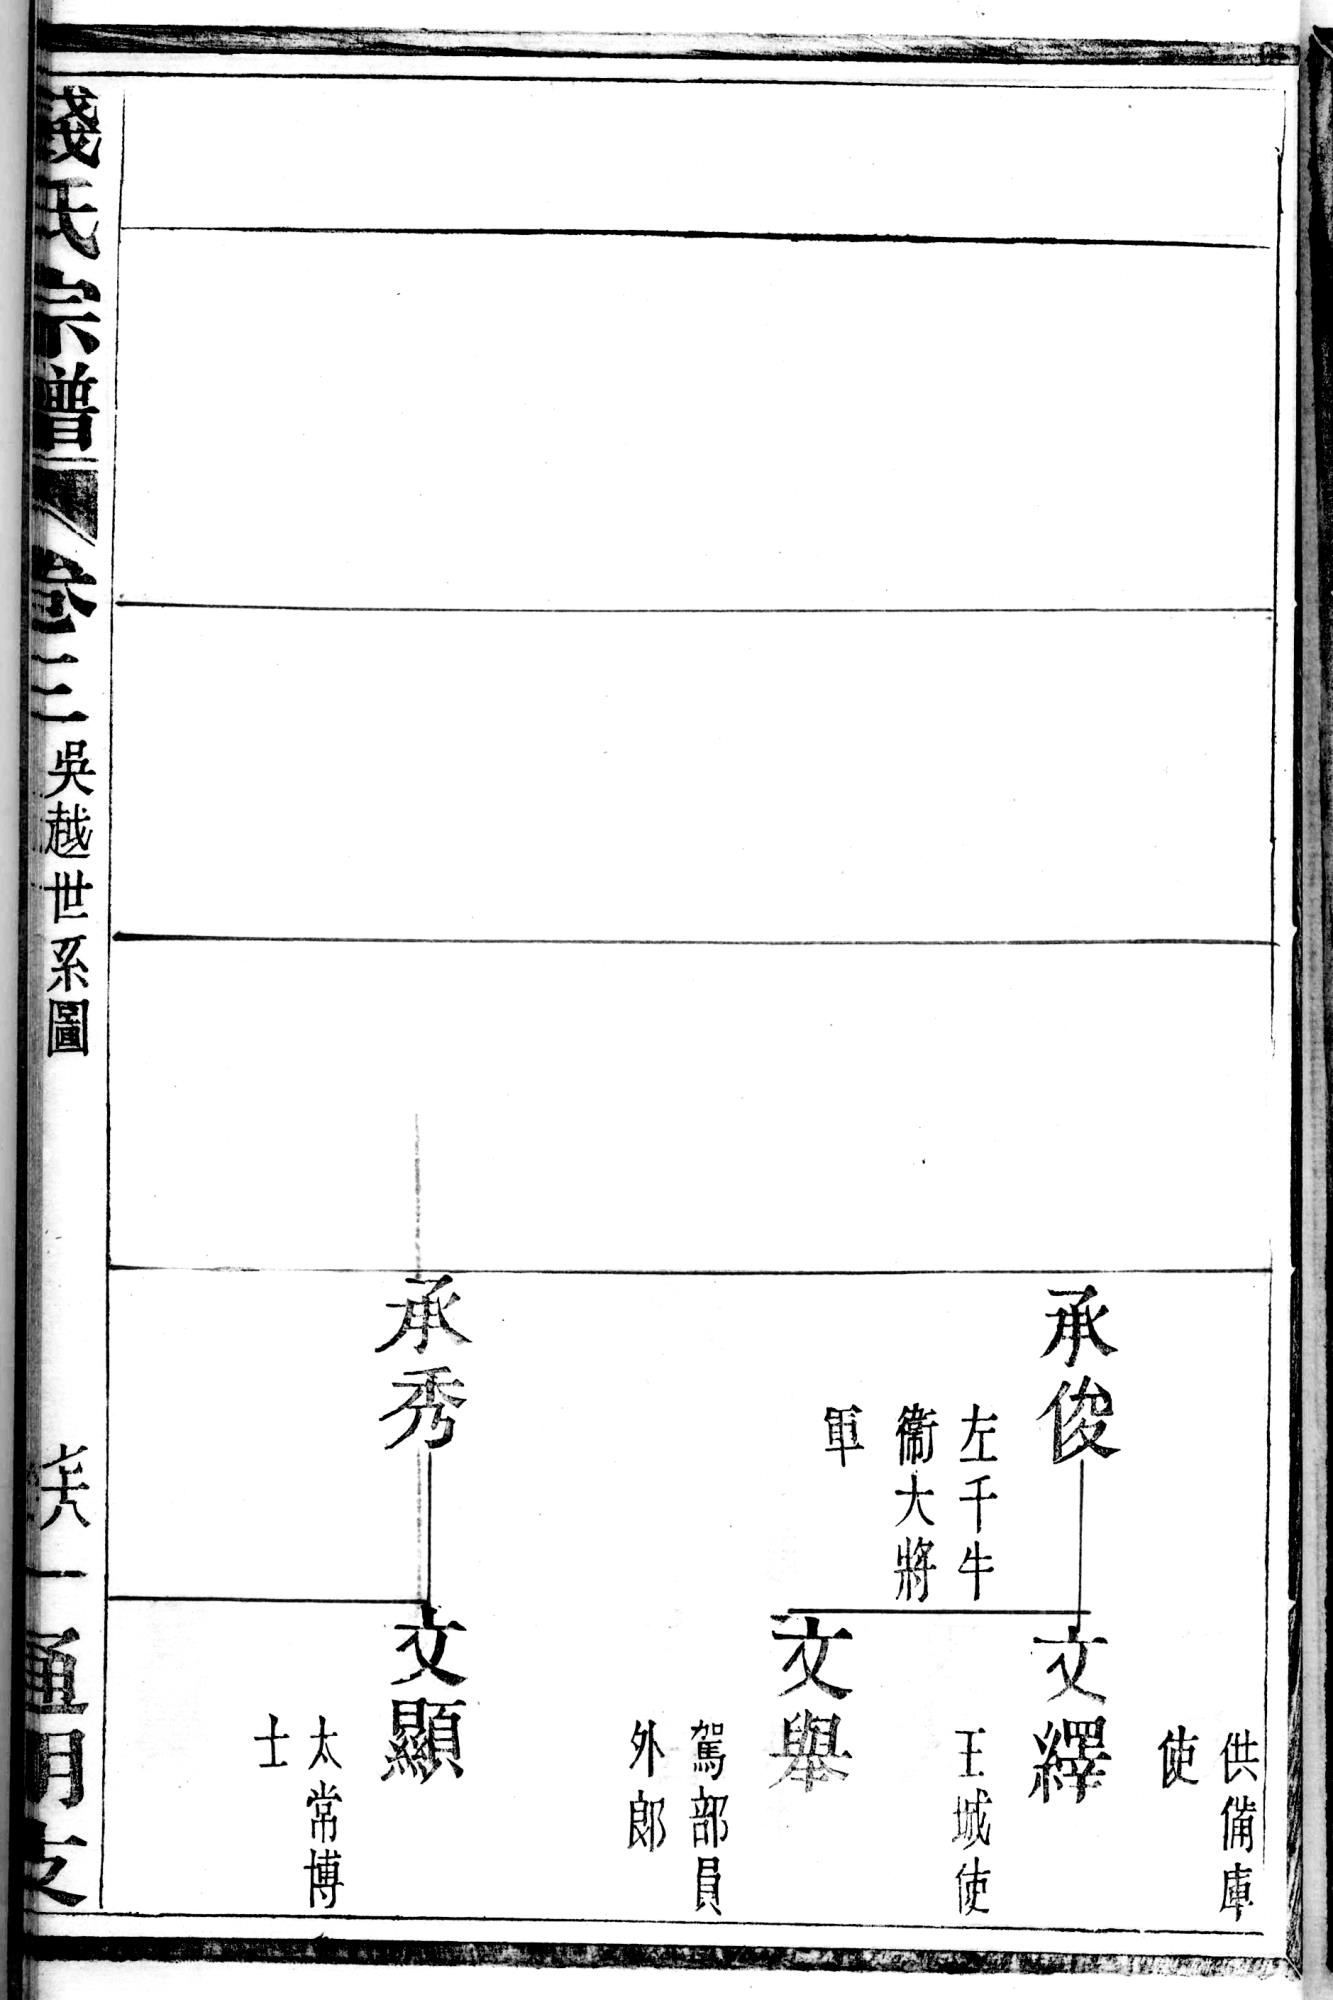 供備庫
使
承俊
左千牛
衞大將
軍
文繹
王城使
文舉
駕部員
外郎
承秀
文顯
太常博
士
錢氏宗譜
卷三
吳越世系圖
通明支